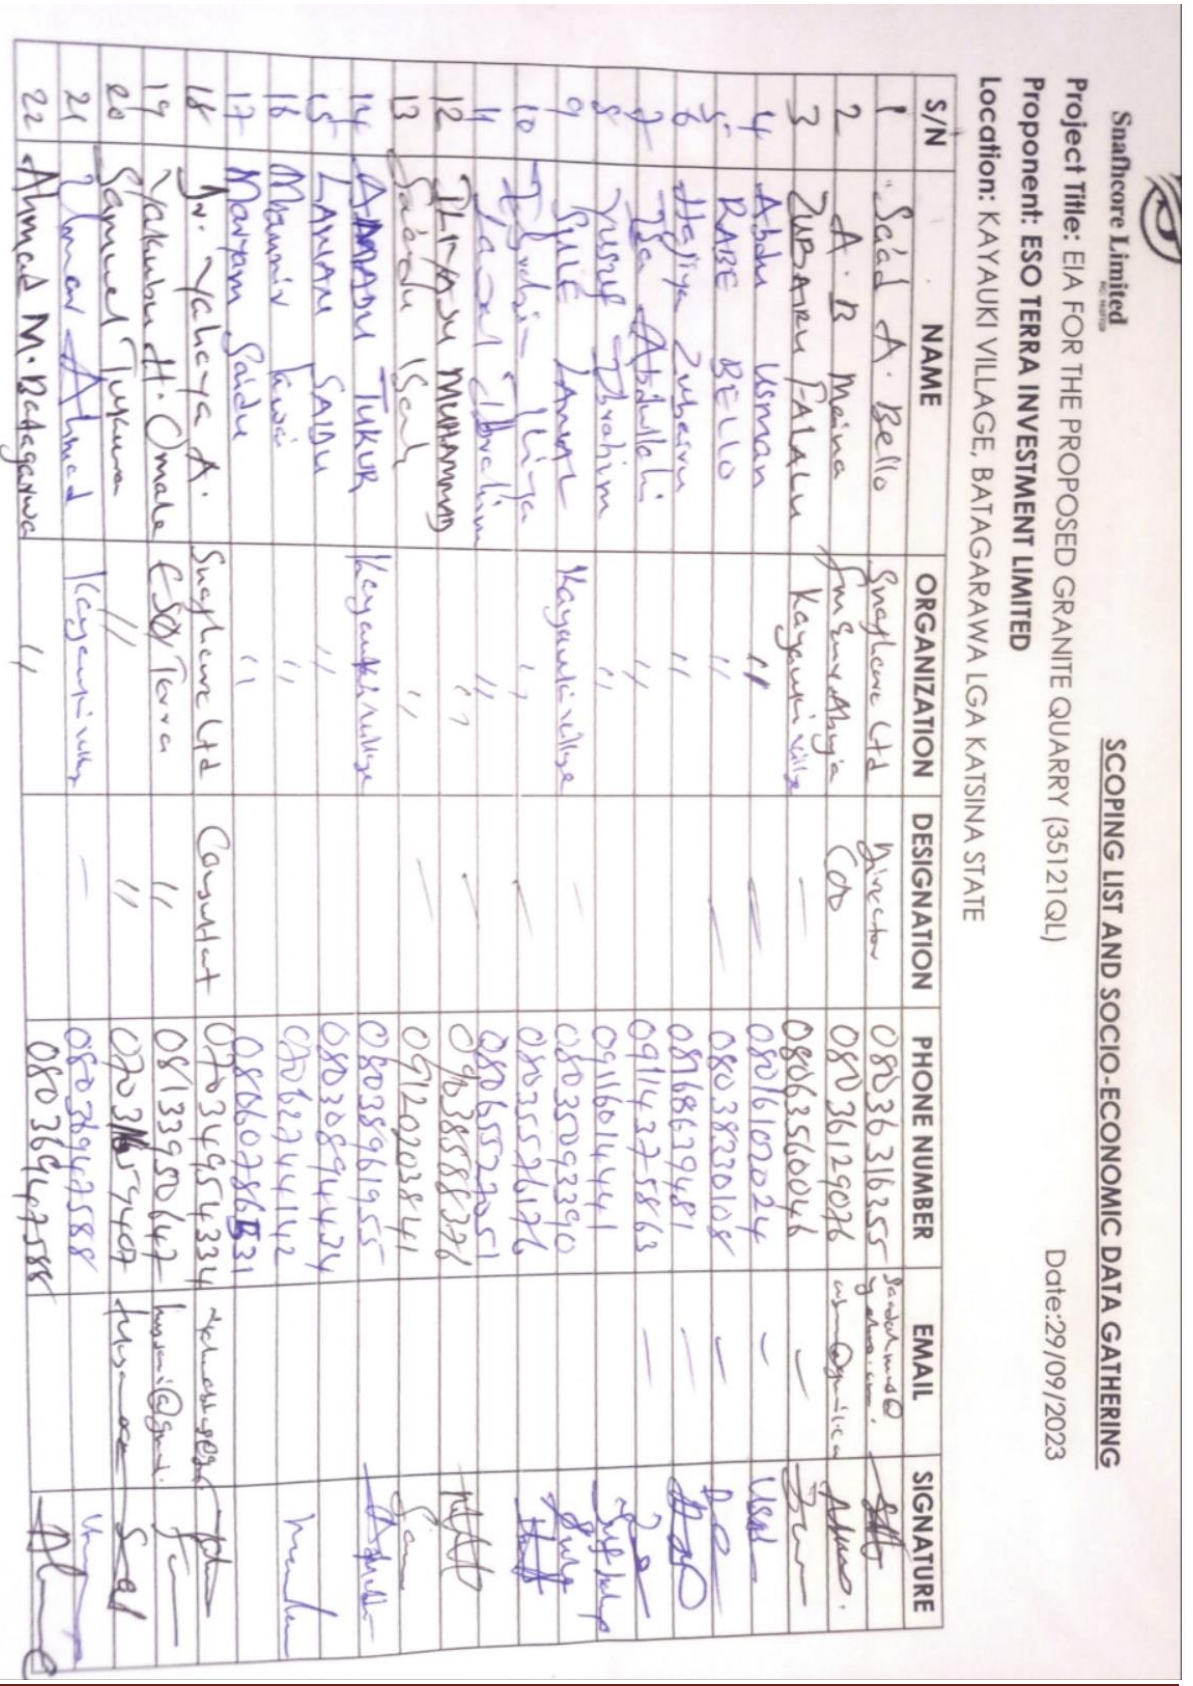 Snafhcore Limited
SCOPING LIST AND SOCIO-ECONOMIC DATA GATHERING
Project Title: EIA FOR THE PROPOSED GRANITE QUARRY (35121QL) Date:29/09/2023
Proponent: ESO TERRA INVESTMENT LIMITED
Location: KAYAUKI VILLAGE, BATAGARAWA LGA KATSINA STATE
S/N NAME ORGANIZATION DESIGNATION PHONE NUMBER EMAIL SIGNATURE
1 Sa'ad A. Bello Snafhcore Ltd Director 08036316355
2 A. B Maina Abuja COO 08036129076
3 ZUBAIRU FALALU Kayauki village — 08063560046 —
4 Abdu Usman " — 08016102024 —
5 RABE BELLO " — 08038330108 —
6 Hajiya Zubairu " 08968679481 —
7 Isa Abdullahi " 09114375863 —
8 Yusuf Ibrahim " 09116014441
9 SULE LAWAL Kayauki village — 08035093390
10 Ibrahim Iliya " — 08035576176
11 Lawal Ibrahim " 08065527051
12 ILIYASU MUHAMMAD " —
13 Sa'idu Isah " — 09120203841
14 AMADU TUKUR Kayauki village 08038961955
15 LAWAL SAIDU " 08030894434
16 Munnir Lawai " 07062744142
17 Maryam Saidu "
18 Dr. Yahaya A. Snafhcore Ltd Consultant 07034954334
19 Yakubu H. Omale ESO Terra " 08133950647
20 Samuel Tukura " "
21 Umar Ahmad Kayauki village — 08036947588
22 Ahmad M. Batagarawa " 08036947588